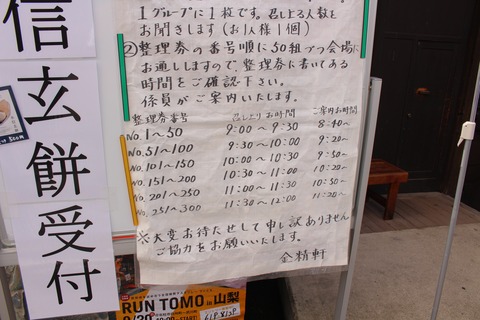 信玄餅受付
1グループに1枚です。召し上る人数を
お聞きします(お1人様1個)
②整理券の番号順に50組ずつ会場に
お通ししますので、整理券に書いてある
時間をご確認下さい。
係員がご案内いたします。
整理券番号 召し上り お時間 ご案内お時間
No.1~50 9:00~9:30 8:40~
No.51~100 9:30~10:00 9:20~
No.101~150 10:00~10:30 9:50~
No.151~200 10:30~11:00 10:20~
No.201~250 11:00~11:30 10:50~
No.251~300 11:30~12:00 11:20~
※大変お待たせして申し訳ありません
ご協力をお願いいたします。
金精軒
RUN TOMO in 山梨